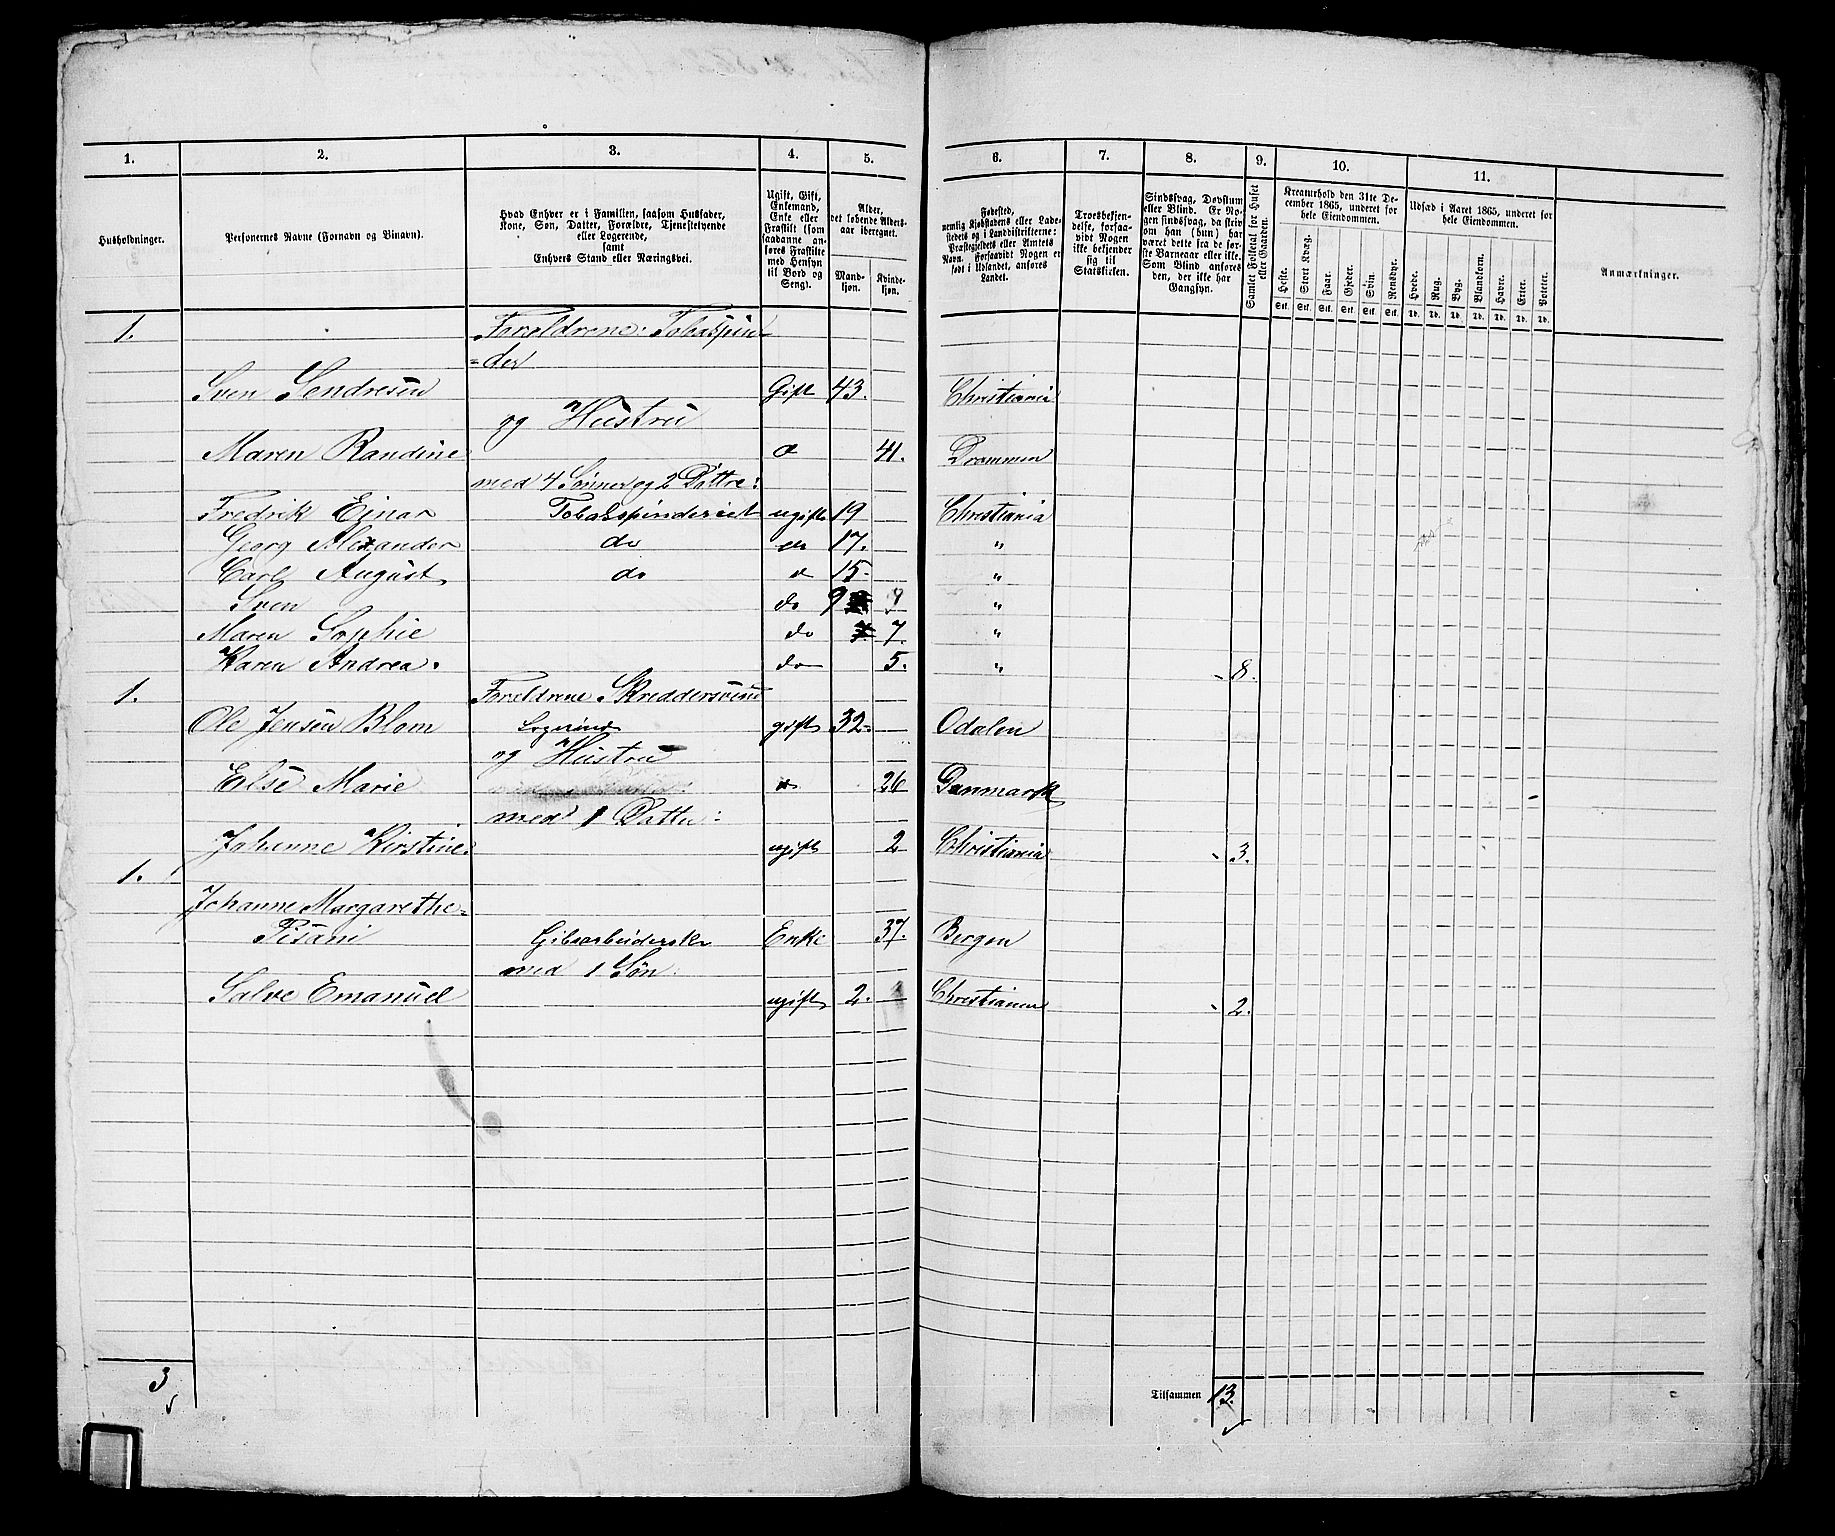 1. 2. 3. 4. 5. 6. 7. 8. 9. 10. 11.
Husholdninger.
Personernes Navne (Fornavn og Tilnavn).
Hvad Enhver er i Familien, saasom Husfader,
Kone, Søn, Datter, Forældre, Tjenestetyende
eller Logerende,
samt
Enhvers Stand eller Næringsvei.
Ugift, Gift,
Enkemand,
Enke eller
Fraskilt (som
saadanne an-
føres Fraskilte
med Hensyn
til Bord og
Seng).
Alder,
det løbende Alders-
aar iberegnet.
Mand-
kjøn.
Kvinde-
kjøn.
Fødested,
nemlig Kjøbstadens eller Lade-
stedets og i Landdistrikterne:
Præstegjeldets eller Amtets
Navn. Forsaavidt Nogen er
født i Udlandet, anføres
Landet.
Troesbekjen-
delse, forsaa-
vidt Nogen
ikke bekjender
sig til
Statskirken.
Sindssvag, Døvstum
eller Blind. Er No-
gen sindssvag, da skriv
om han (hun) har
været dette fra de før-
ste Barneaar eller ikke.
Som Blind anføres
den, der ikke har
Gangsyn.
Samlet Folketal for Huset
eller Gaarden.
Kreaturhold den 31te De-
cember 1865, underet for
hele Eiendommen.
Heste. Stort Kvæg. Faar. Gjeder. Svin. Rensdyr.
Stk. Stk. Stk. Stk. Stk. Stk.
Udsæd i Aaret 1865, underet for
hele Eiendommen.
Hvede. Rug. Byg. Blandkorn. Havre. Erter. Poteter.
Td. Td. Td. Td. Td. Td. Td.
Anmærkninger.
1. Foreldrene: Tobaspin
=der
Sven Sendresen Gift 43. Christiania
og Hustru
Maren Randine do 41. Drammen
med 4 Sønner og 2 Døttre:
Fredrik Ejnar Tobasspinderiet ugift 19 Christiania
Georg Alexander do do 17. "
Carl August do do 15. "
Sven do 9 "
Maren Sophie do 7. "
Karen Andrea. do 5. " 8.
1. Foreldrene Skreddersvend
Ole Jensen Blom Logerend gift 32. Odalen
og Hustru
Else Marie do 26 Danmark
med 1 Datter:
Johanne Kirstine. ugift 2 Christiania 3.
1.
Johanne Margarethe
Pisani Gibsarbeiderske Enke 37. Bergen
med 1 Søn:
Salve Emanuel ugift 2. Christiania 2.
3
Tilsammen 13.